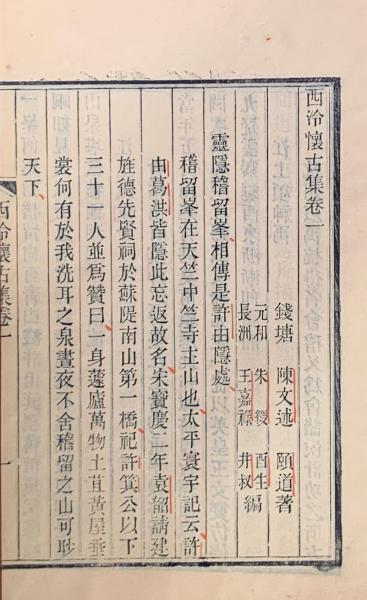 西泠懷古集卷一
錢塘 陳文述 頤道著
元和 朱綬 酉生
長洲 王嘉祿 井叔 編
靈隱稽留峯相傳是許由隱處
稽留峯在天竺中竺寺主山也太平寰宇記云許
由葛洪皆隱此忘返故名宋寶慶二年袁韶請建
旌德先賢祠於蘇隄南山第一橋祀許箕公以下
三十一人並為贊曰一身蘧廬萬物土苴黃屋垂
裳何有於我洗耳之泉晝夜不舍稽留之山可眇
天下
西泠懷古集卷一
一